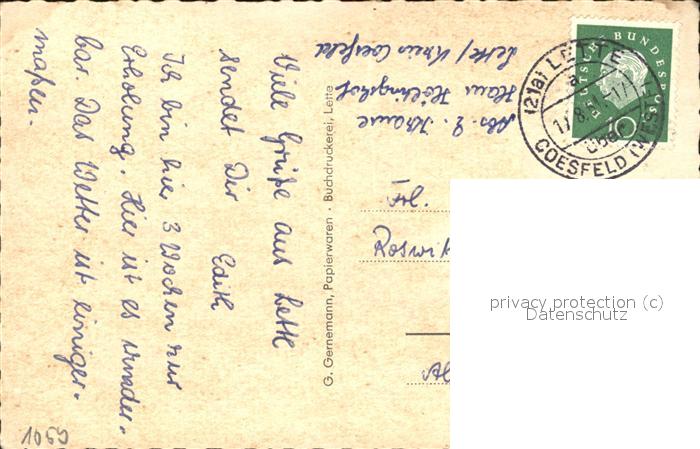 Viele Grüße aus Lette
sendet Dir Edith
Ich bin hier 3 Wochen zur
Erholung. Hier ist es wunder-
bar. Das Wetter ist einiger-
maßen.
G. Gernemann, Papierwaren · Buchdruckerei, Lette
Abs. E. Krause
Haus
Lette/Kreis Coesfeld
DEUTSCHE BUNDESPOST
10
(21a) LETTE
a
über
COESFELD (WESTF)
Frl.
Roswi
privacy protection (c)
Datenschutz
1059